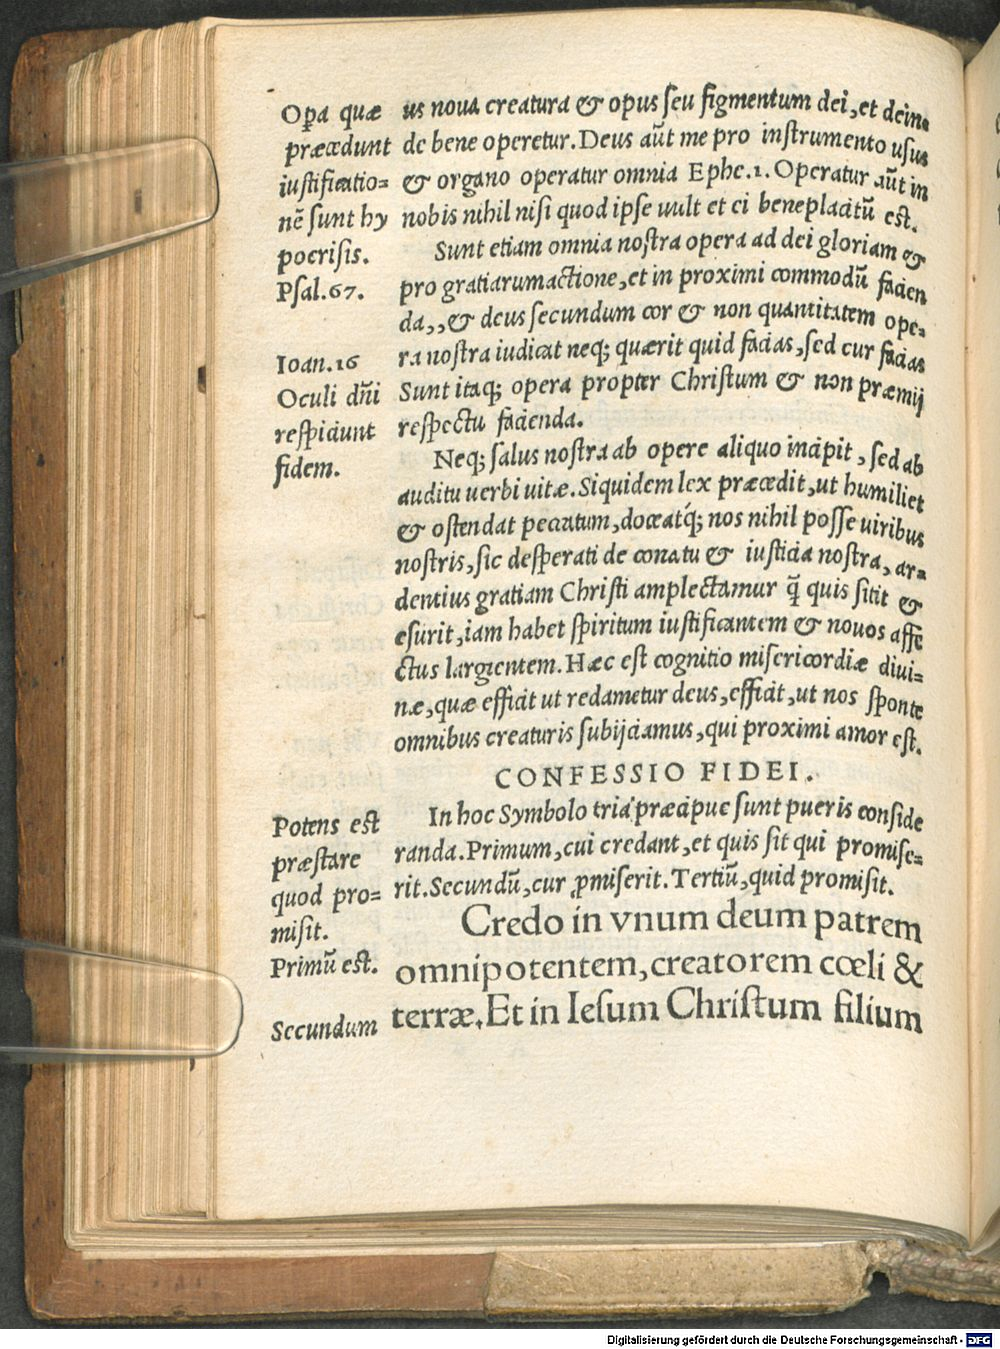 Opa quæ
præcedunt
iustificatio=
nē sunt hy
pocrisis.
Psal.67.
Ioan.16
Oculi dñi
respiciunt
fidem.
us noua creatura & opus seu figmentum dei, et dein=
de bene operetur. Deus aūt me pro instrumento usus
& organo operatur omnia Ephe.1. Operatur aūt in
nobis nihil nisi quod ipse uult et ei beneplacitū est.
Sunt etiam omnia nostra opera ad dei gloriam &
pro gratiarumactione, et in proximi commodū facien
da,,& deus secundum cor & non quantitatem ope=
ra nostra iudicat neq; quærit quid facias, sed cur facias
Sunt itaq; opera propter Christum & non præmij
respectu facienda.
Neq; salus nostra ab opere aliquo incipit, sed ab
auditu uerbi uitæ. Siquidem lex præcedit, ut humiliet
& ostendat peccatum, doceatq́; nos nihil posse uiribus
nostris, sic desperati de conatu & iusticia nostra, ar=
dentius gratiam Christi amplectamur q̄ quis sitit &
esurit, iam habet spiritum iustificantem & nouos affe
ctus largientem. Hæc est cognitio misericordiæ diui=
næ, quæ efficit ut redametur deus, efficit, ut nos sponte
omnibus creaturis subijciamus, qui proximi amor est.
CONFESSIO FIDEI.
In hoc Symbolo tria præcipue sunt pueris conside
randa. Primum, cui credant, et quis sit qui promise=
rit. Secundū, cur ꝓmiserit. Tertiū, quid promisit.
Credo in vnum deum patrem
omnipotentem, creatorem cœli &
terræ. Et in Iesum Christum filium
Potens est
præstare
quod pro=
misit.
Primū est.
Secundum
Digitalisierung gefördert durch die Deutsche Forschungsgemeinschaft - DFG